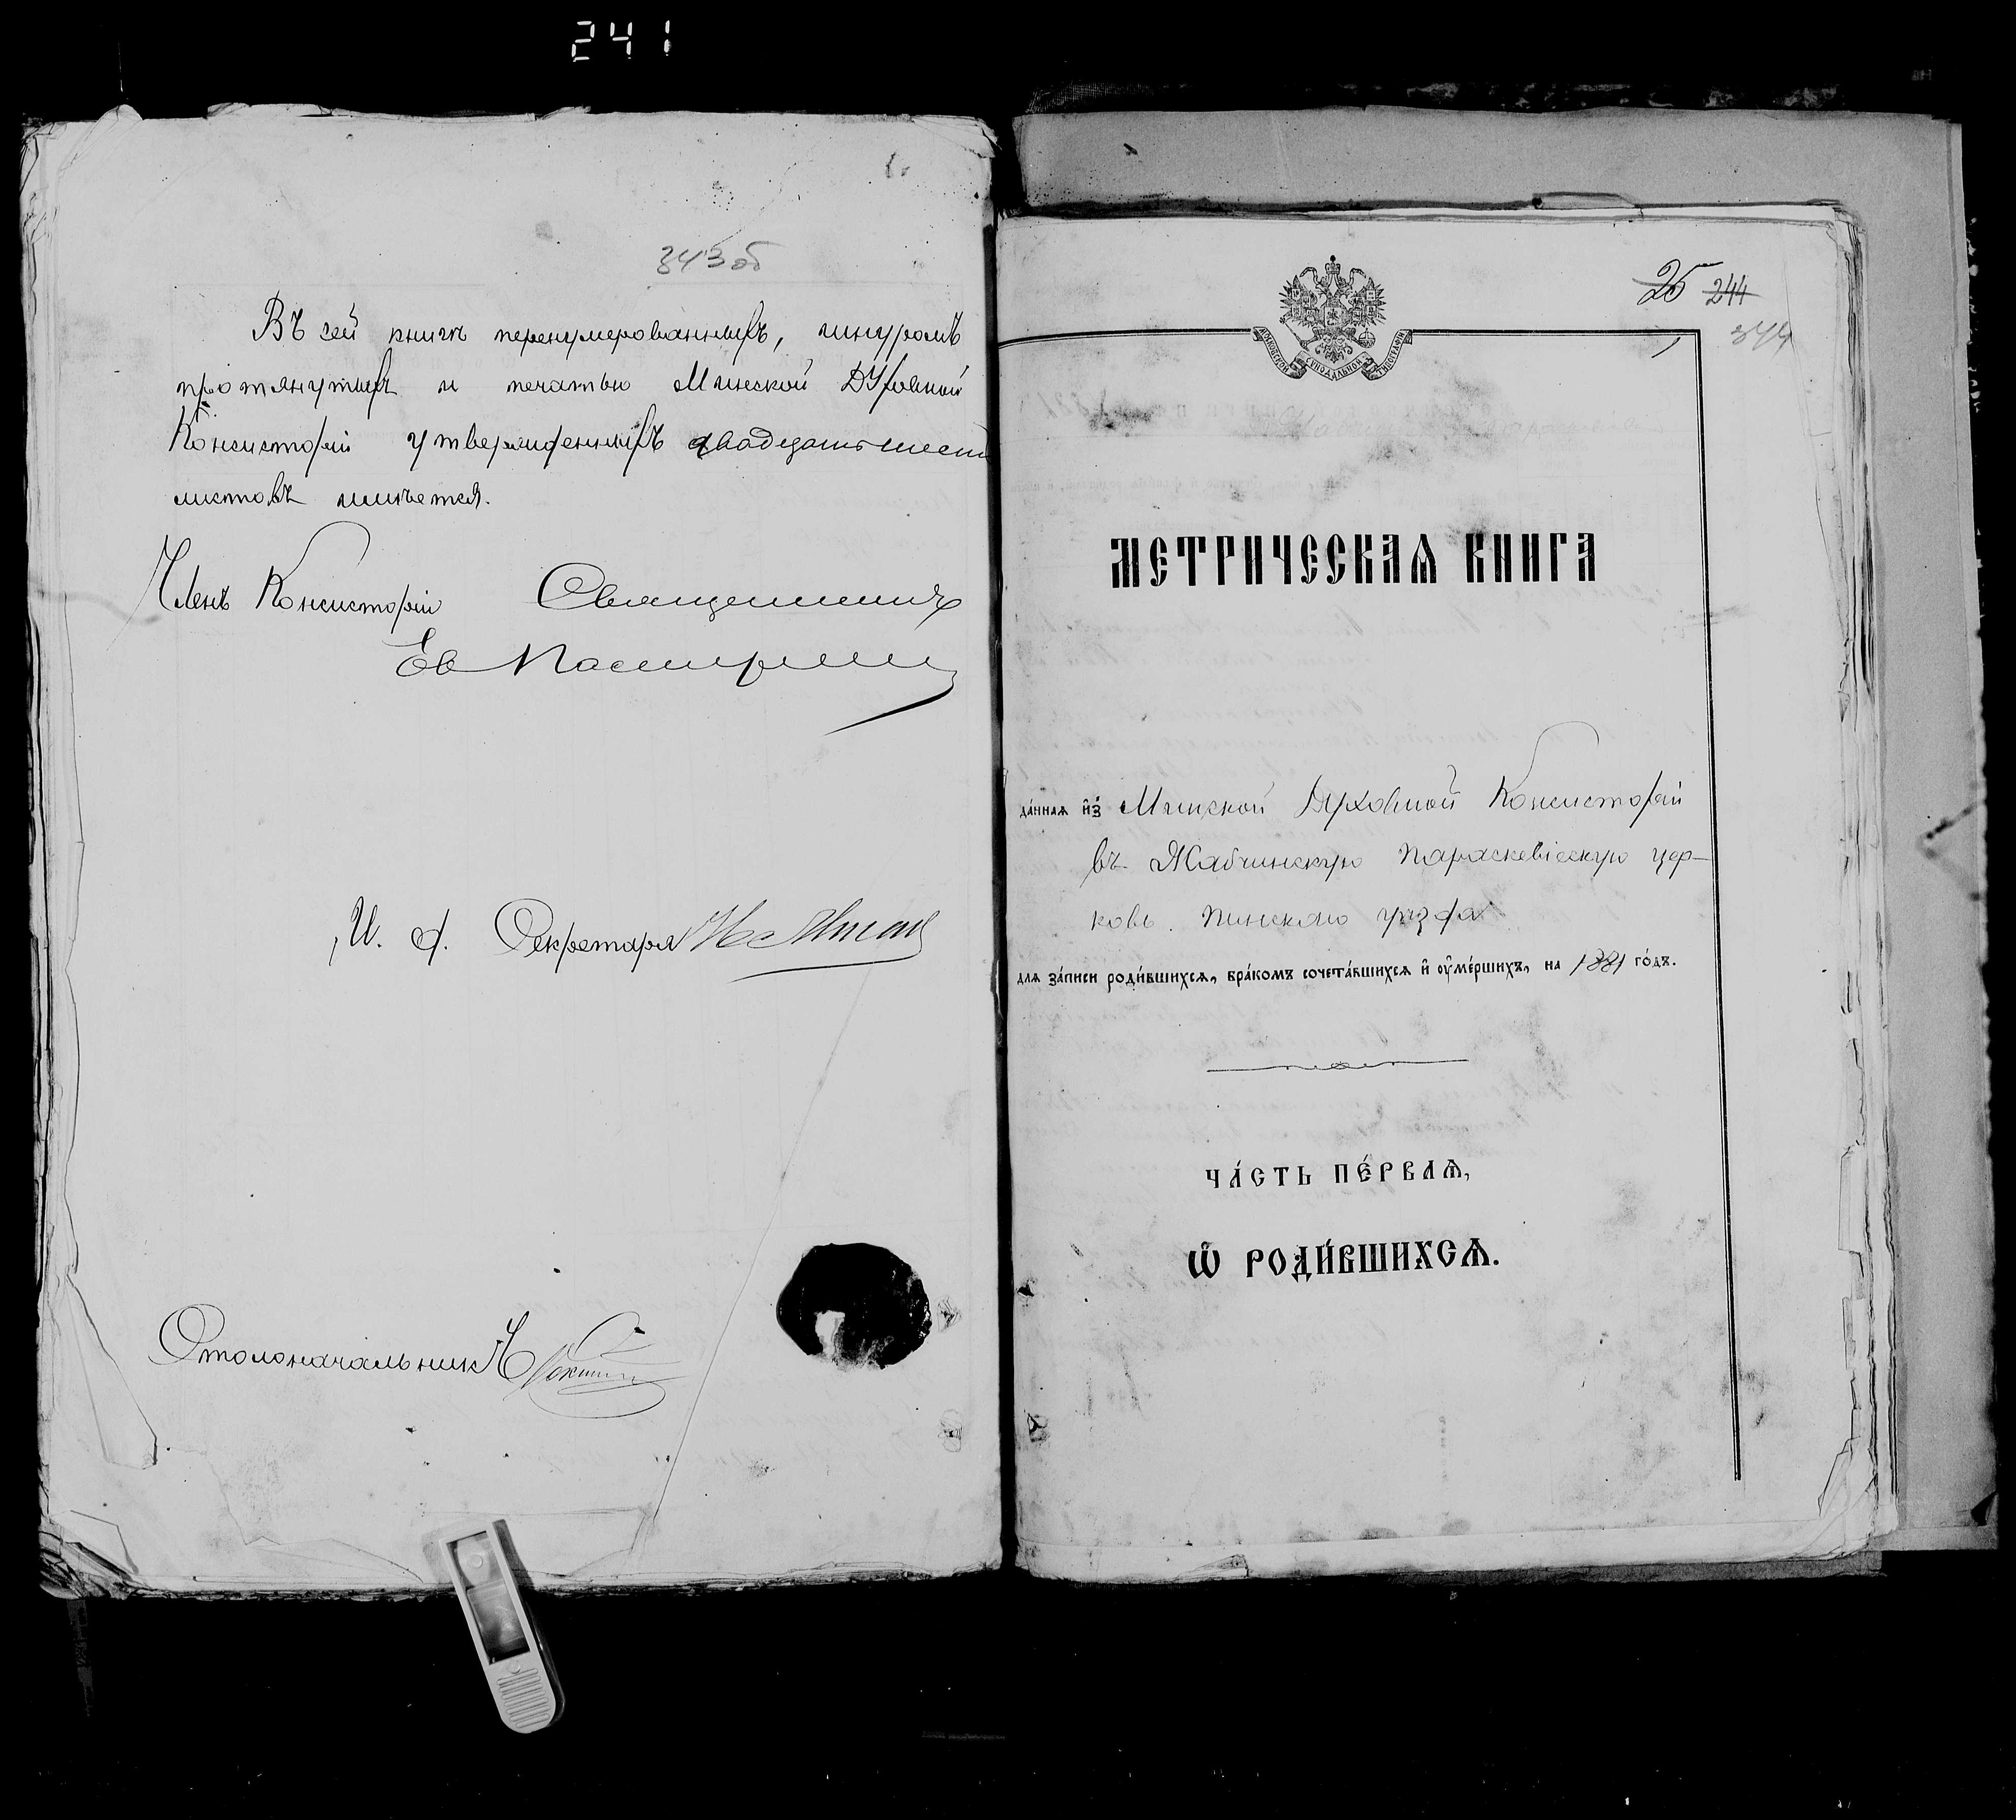 241
343 об
Въ сей книгѣ перенумерованныхъ, шнуромъ
протянутыхъ и печатью Минской Духовной
Консисторіи утвержденныхъ двадцать шесть
листовъ имѣется.
Членъ Консисторіи Священникъ
И. д. Секретаря
Столоначальникъ
25 244
344
МОСКОВСКОЙ СѴНОДАЛЬНОЙ ТИПОГРАФІИ
МЕТРИЧЕСКАЯ КНИГА
да́нная и҆з̾ Минской Духовной Консисторіи
въ Жабчинскую Параскевіескую цер-
ковь Пинскаго уѣзда
для за́писи роди́вшихся, бра́комъ сочета́вшихся и҆ ᲂу҆ме́ршихъ, на 1881 го́дъ.
ЧА́СТЬ ПЕ́РВАЯ,
Ѡ҆ РОДИ́ВШИХСЯ.